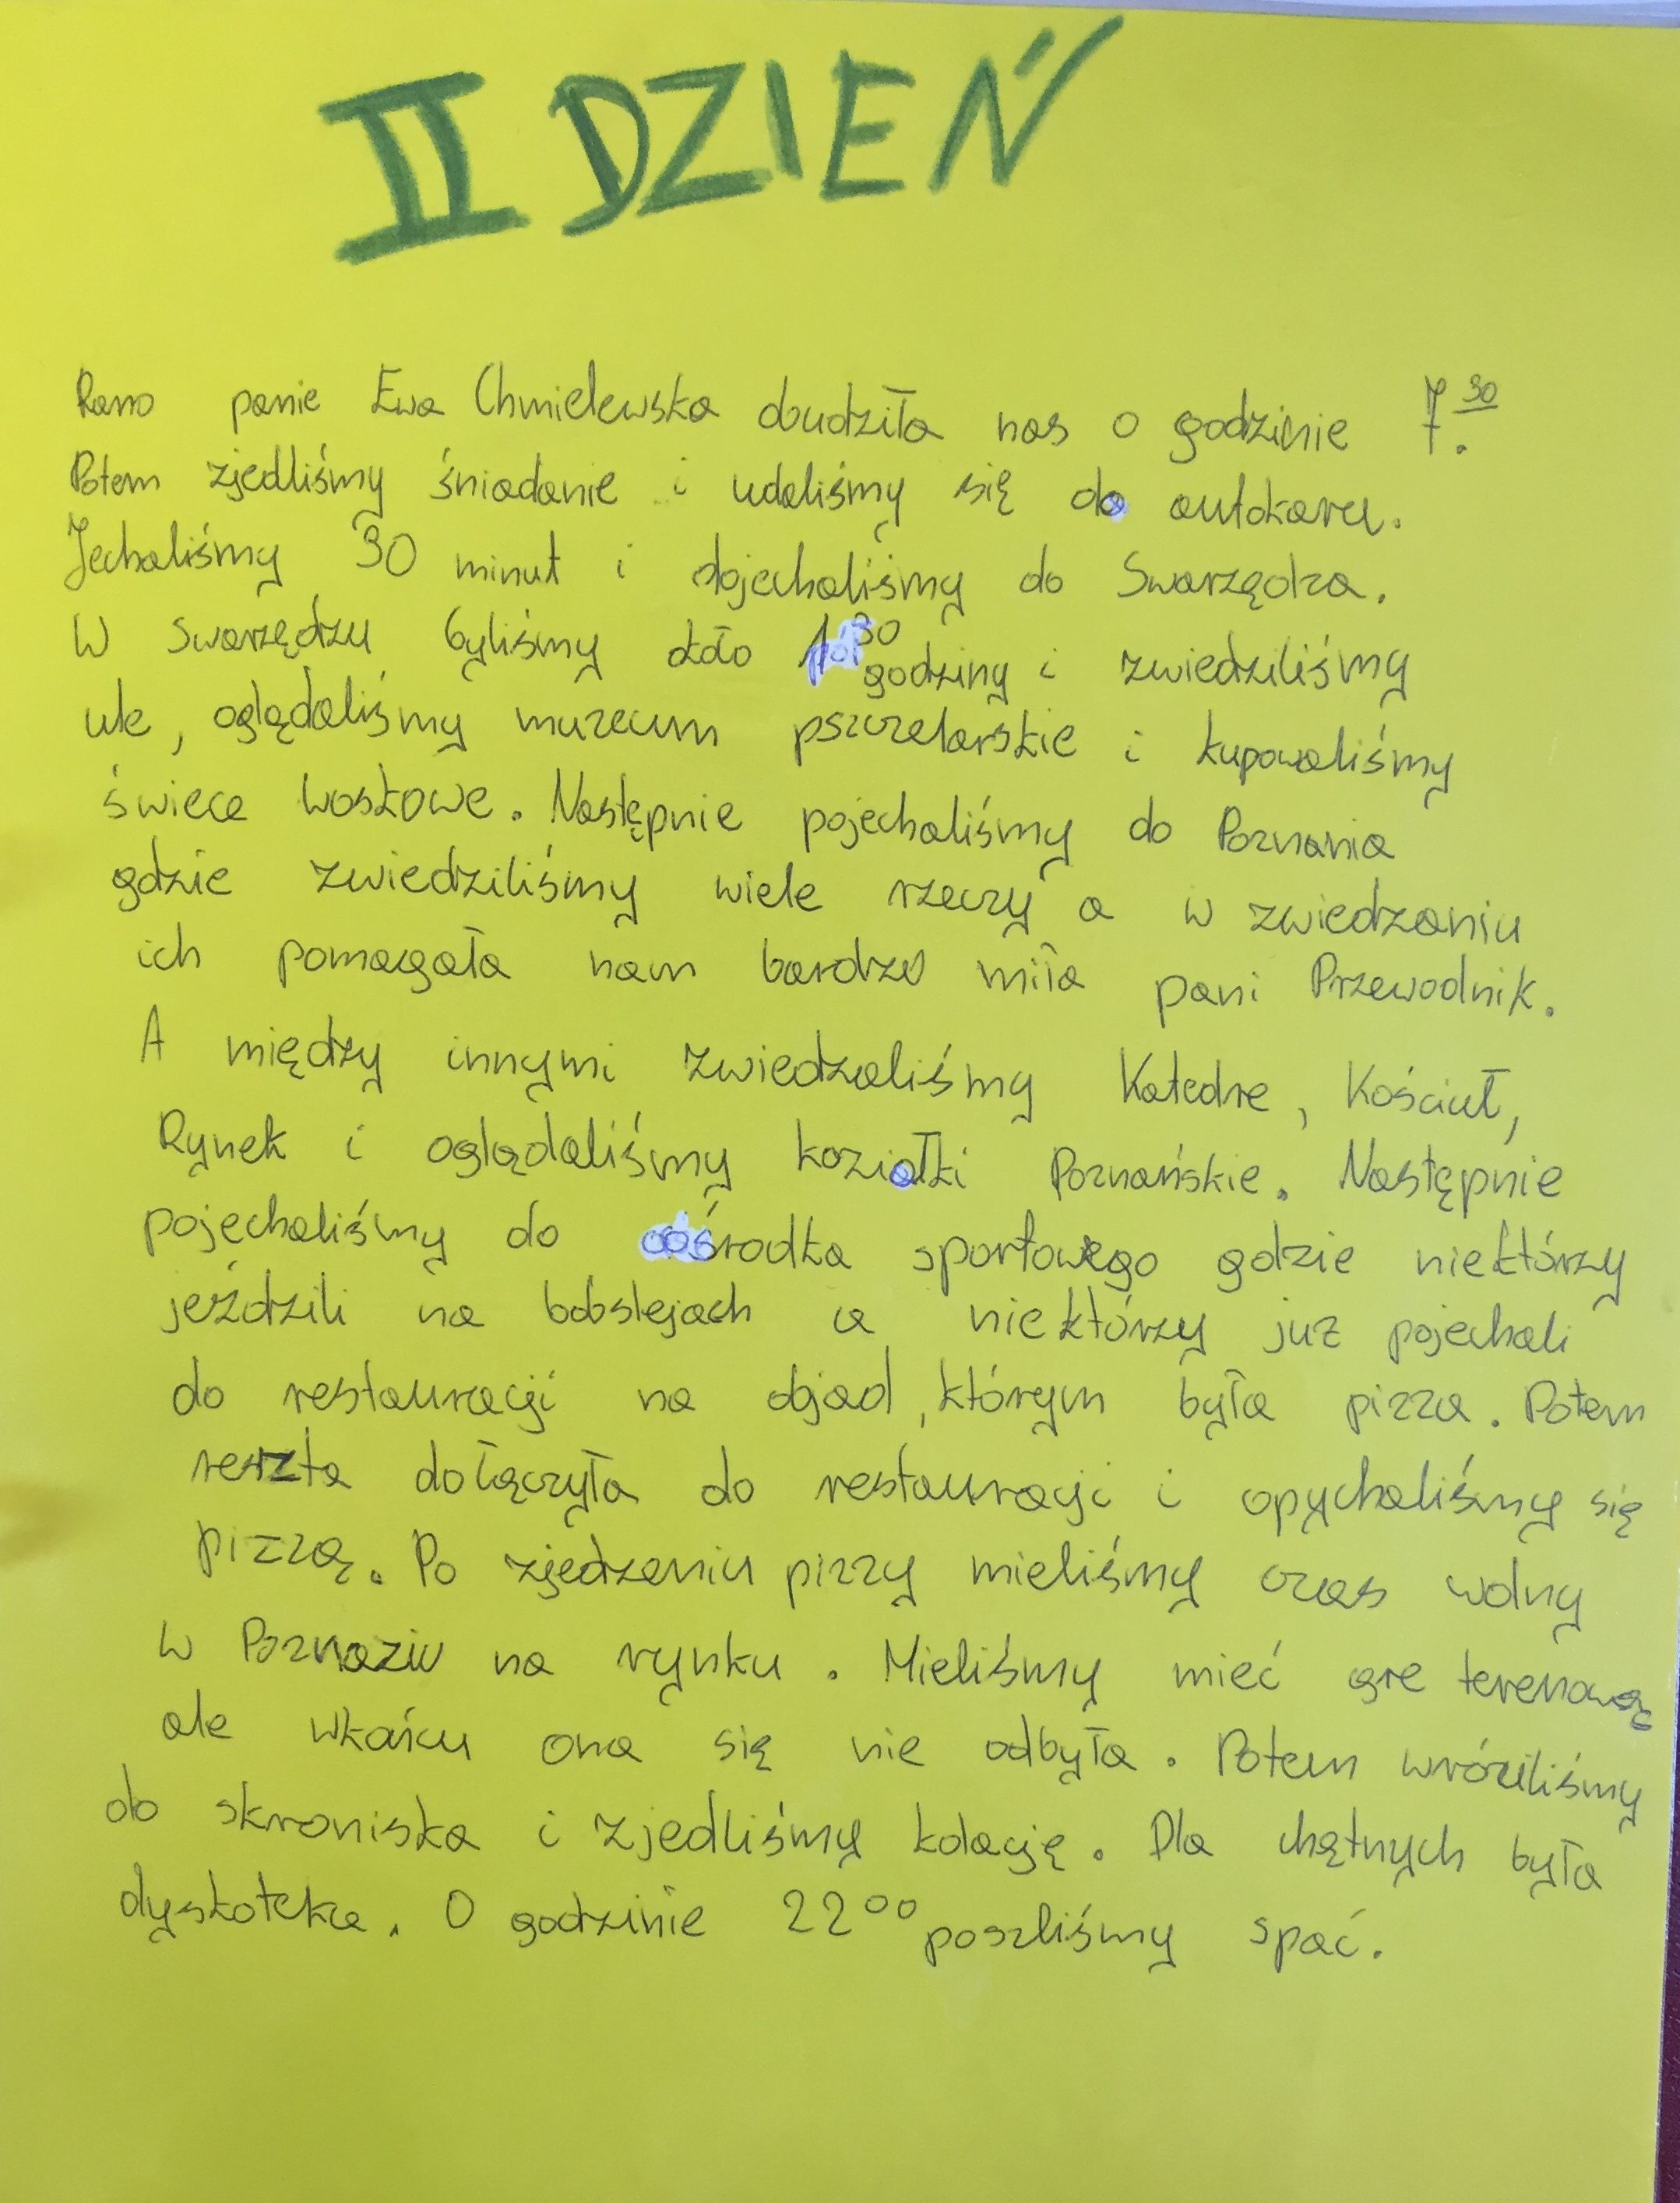 II DZIEŃ
Rano panie Ewa Chmielewska obudziła nas o godzinie 7.30
Potem zjedliśmy śniadanie i udaliśmy się do autokaru.
Jechaliśmy 30 minut i dojechaliśmy do Swarzędza.
W Swarzędzu byliśmy około 1 30 godziny i zwiedziliśmy
ule, oglądaliśmy muzeum pszczelarskie i kupowaliśmy
świece woskowe. Następnie pojechaliśmy do Poznania
gdzie zwiedziliśmy wiele rzeczy a w zwiedzaniu
ich pomagała nam bardzo miła pani Przewodnik.
A między innymi zwiedzaliśmy Katedre, Kościuł,
Rynek i oglądaliśmy koziałki Poznańskie. Następnie
pojechaliśmy do ośrodka sportowego gdzie niektórzy
jeździli na bobslejach a niektórzy już pojechali
do restauracji na objad, którym była pizza. Potem
reszta dołączyła do restauracji i opychaliśmy się
pizzą. Po zjedzeniu pizzy mieliśmy czas wolny
w Poznaziu na rynku. Mieliśmy mieć gre terenową
ale wkońcu ona się nie odbyła. Potem wróciliśmy
do skroniska i zjedliśmy kolację. Dla chętnych była
dyskoteka. O godzinie 22 00 poszliśmy spać.